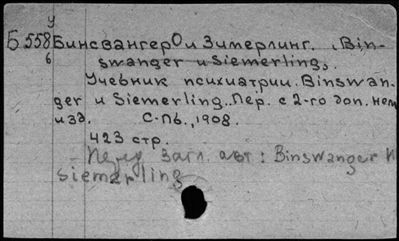 у
Б 558 Бинсвангер О и Зимерлинг. , Bin-
б swanger и Siemerling,
Учебник психиатрии. Binswan-
ger и Siemerling. Пер. с 2-го доп. нем
изд. С.-Пб., 1908.
423 стр.
Перед загл. авт : Binswanger и
Siemerling